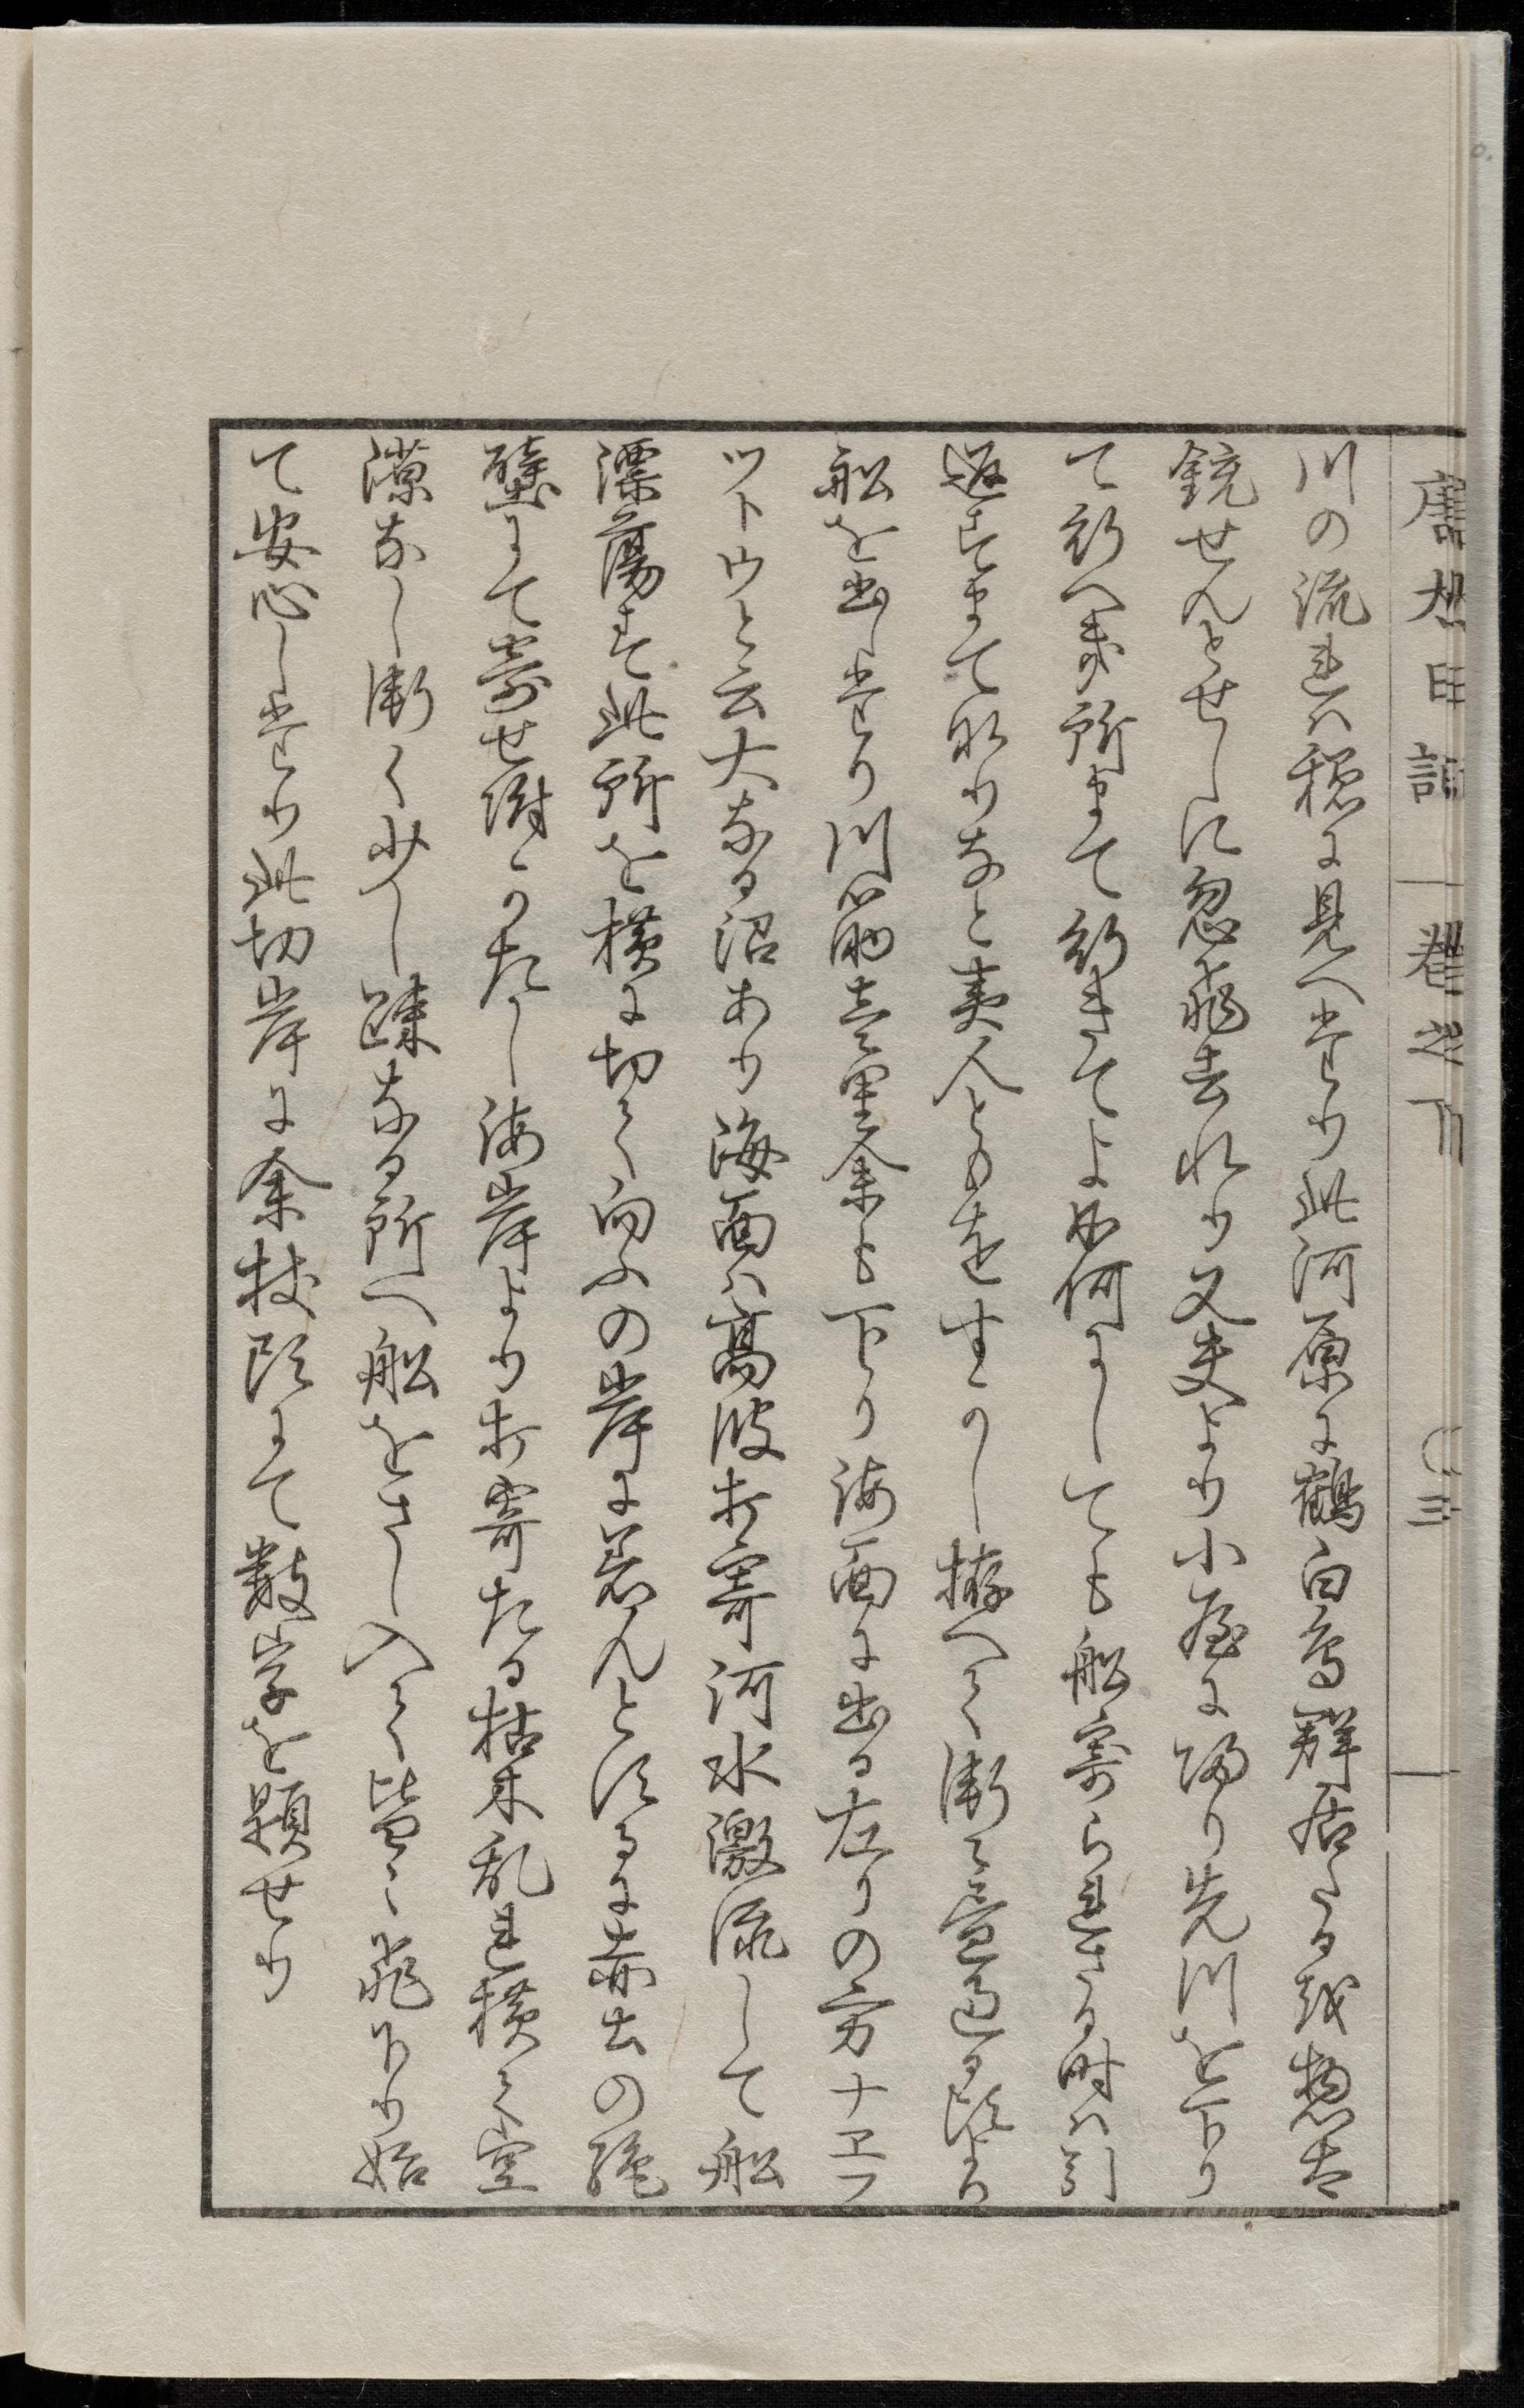 唐太日記 巻之下 〇三
川の流れハ穏に見へたり此河原に鶴白鳥群居たる故惣太
銃せんとせしに忽飛去れり又夫より小屋に帰り先川を下り
て行へき所まて行きてよ如何にしても船寄られさる時ハ引
返すまてなりなと夷人ともをすかし拵へて漸く過る頃より
船を出したり川筋壹里余も下り海面に出る左りの方ナヱフ
ツトウと云大なる沼あり海面ハ高波打寄河水激流して船
漂蕩す此所を横に切て向ふの岸に着んとするに赤土の絶
壁にて寄せ附かたし海岸より打寄たる枯木乱れ横て空
隙なし漸く少し疎なる所へ船をさし入て皆々飛下り始
て安心したり此切岸に余杖頭にて数字を題せり